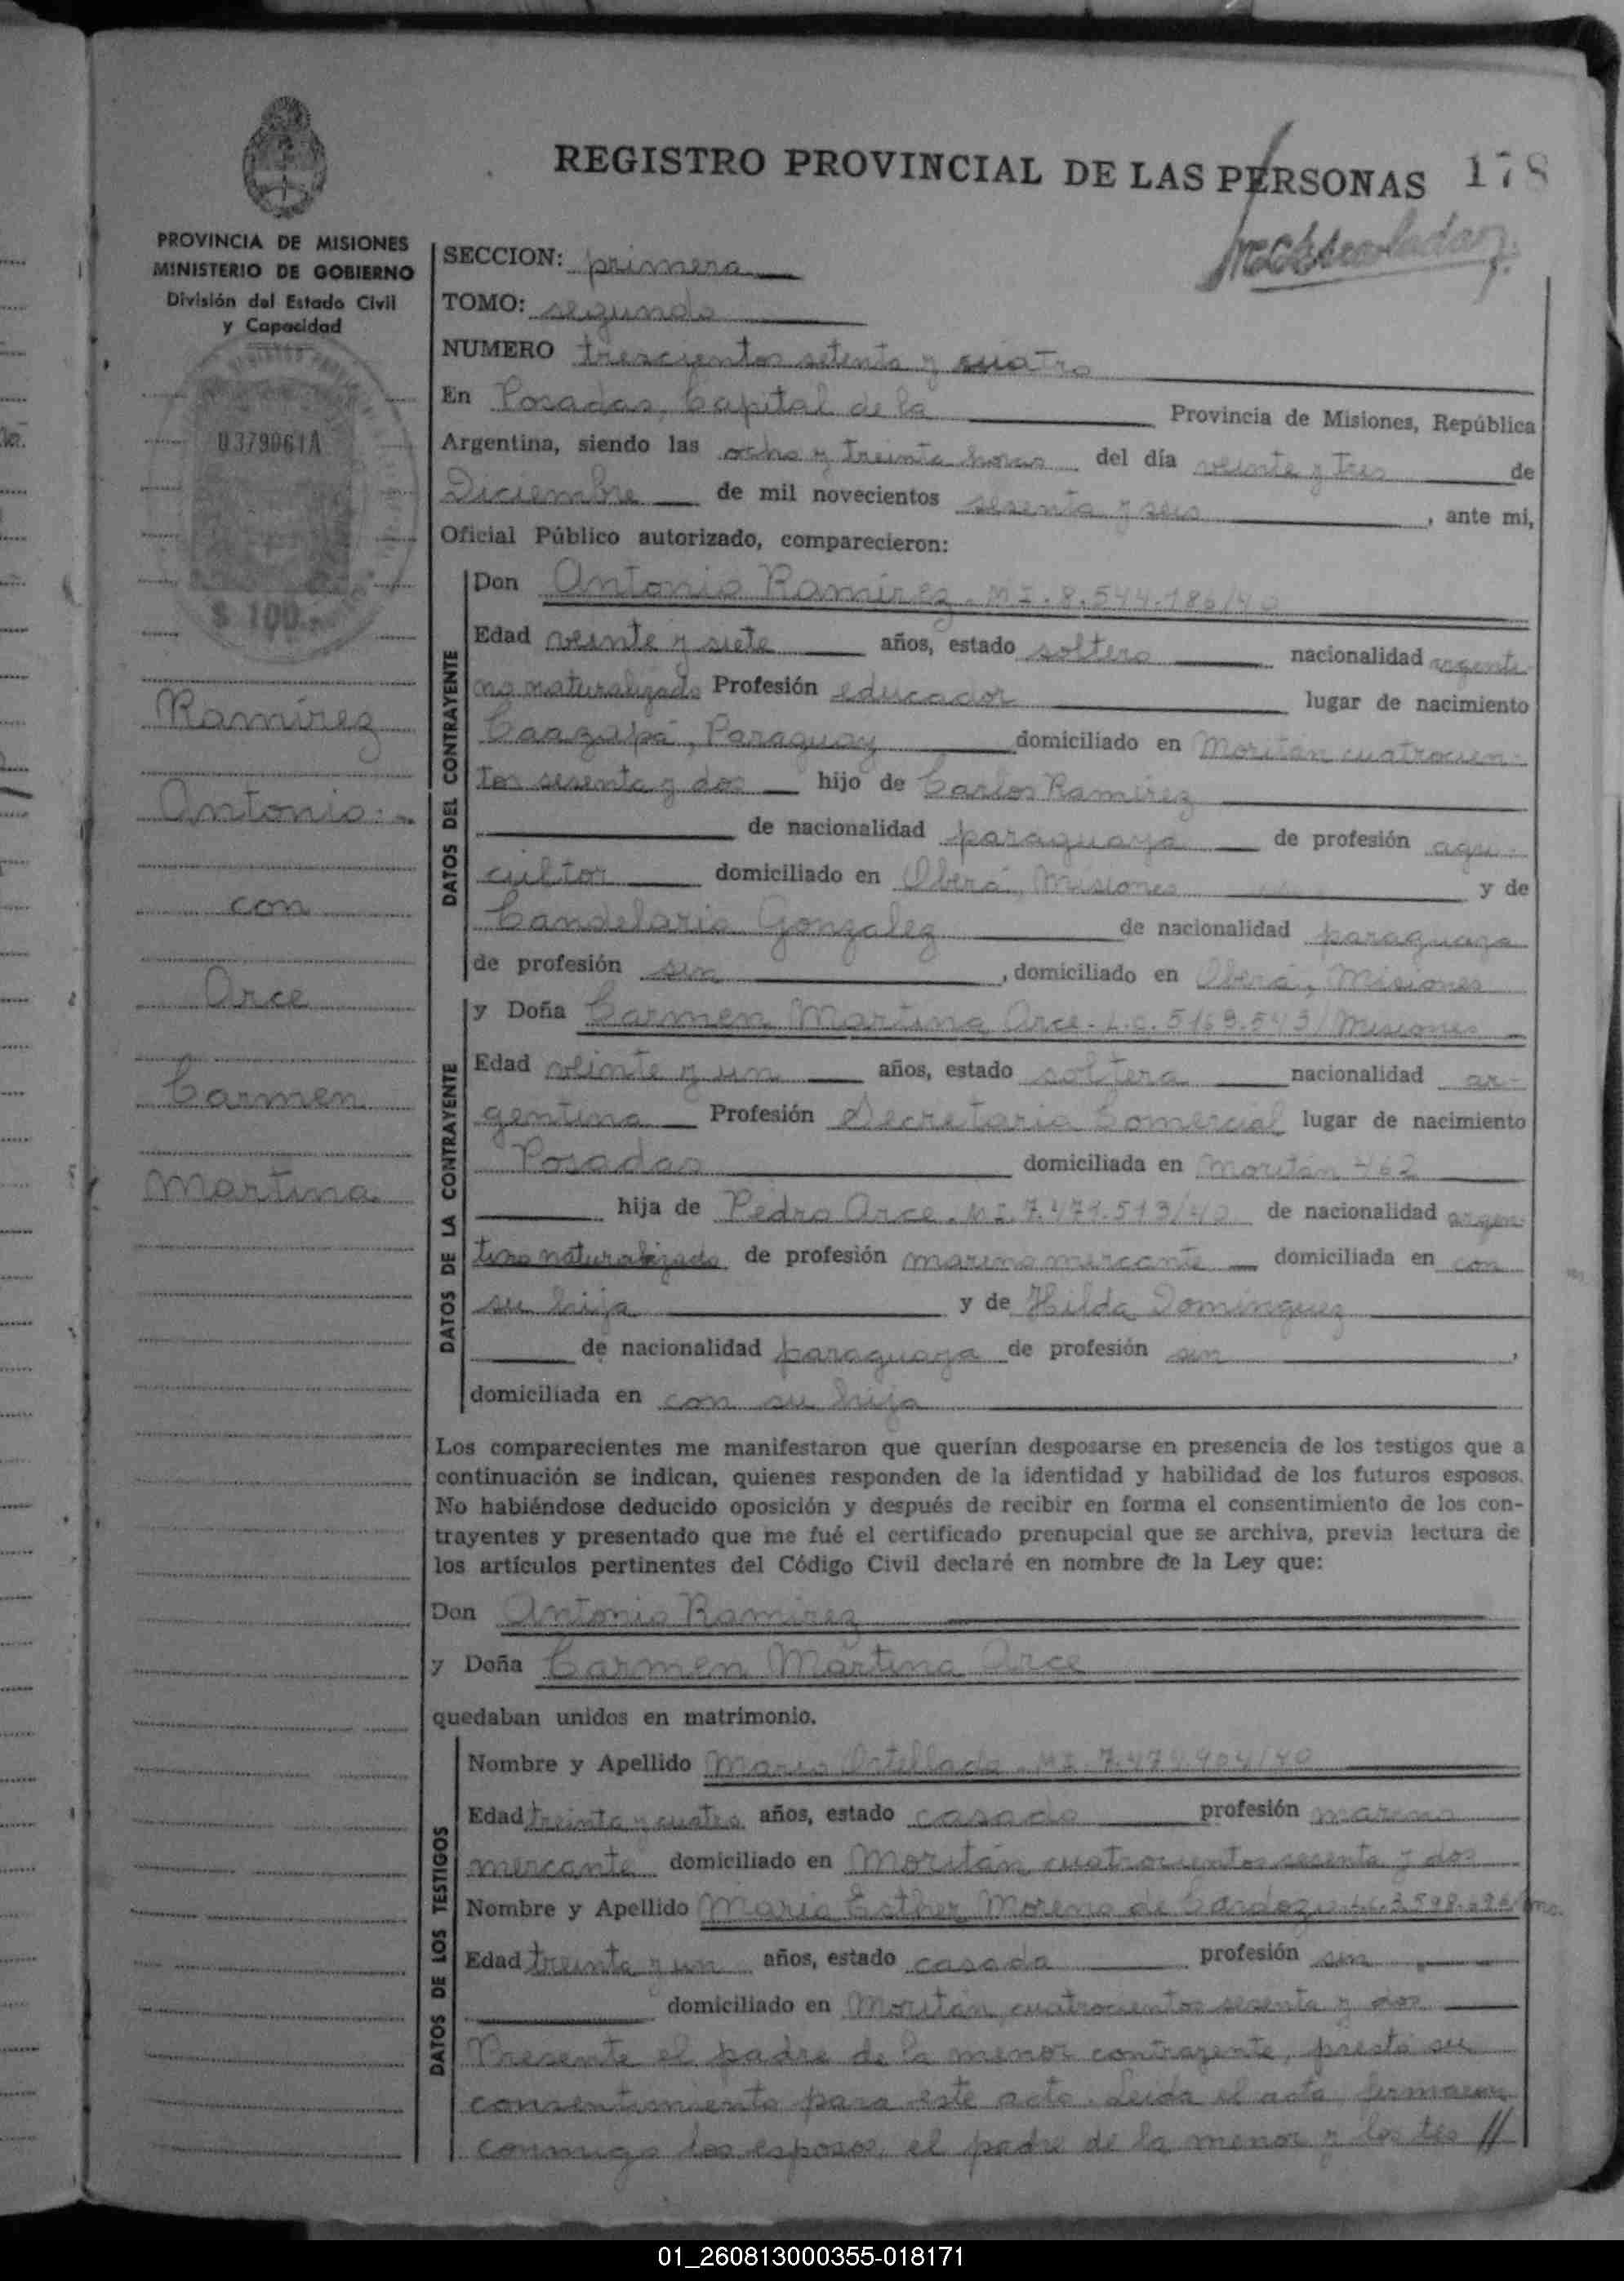 REGISTRO PROVINCIAL DE LAS PERSONAS 178
PROVINCIA DE MISIONES
MINISTERIO DE GOBIERNO
División del Estado Civil
y Capacidad
0379061A
$ 100.-
Ramírez
Antonio
con
Arce
Carmen
Martina
SECCION: primera
TOMO: segundo
NUMERO trescientos setenta y cuatro
En Posadas, Capital de la Provincia de Misiones, República
Argentina, siendo las ocho y treinta horas del día veinte y tres de
Diciembre de mil novecientos sesenta y seis, ante mi,
Oficial Público autorizado, comparecieron:
DATOS DEL CONTRAYENTE
Don Antonio Ramírez. M I. 8.544.186/40
Edad veinte y siete años, estado soltero nacionalidad argenti-
no naturalizado Profesión educador lugar de nacimiento
Caazapá, Paraguay domiciliado en Moritán cuatrocien-
tos sesenta y dos hijo de Carlos Ramírez
de nacionalidad paraguaya de profesión agri-
cultor domiciliado en Oberá, Misiones y de
Candelaria Gonzalez de nacionalidad paraguaya
de profesión sin, domiciliado en Oberá, Misiones
DATOS DE LA CONTRAYENTE
y Doña Carmen Martina Arce. L.C. 5169.543/Misiones
Edad veinte y un años, estado soltera nacionalidad ar-
gentina Profesión Secretaria Comercial lugar de nacimiento
Posadas domiciliada en Moritán 462
hija de Pedro Arce. M I. 7.471.513/40 de nacionalidad argen-
tino naturalizado de profesión marino mercante domiciliada en con
su hija y de Hilda Domínguez
de nacionalidad paraguaya de profesión sin,
domiciliada en con su hija
Los comparecientes me manifestaron que querían desposarse en presencia de los testigos que a
continuación se indican, quienes responden de la identidad y habilidad de los futuros esposos.
No habiéndose deducido oposición y después de recibir en forma el consentimiento de los con-
trayentes y presentado que me fué el certificado prenupcial que se archiva, previa lectura de
los artículos pertinentes del Código Civil declaré en nombre de la Ley que:
Don Antonio Ramírez
y Doña Carmen Martina Arce
quedaban unidos en matrimonio.
DATOS DE LOS TESTIGOS
Nombre y Apellido Mario M I. 7.479.904/40
Edad treinta y cuatro años, estado casado profesión marino
mercante domiciliado en Moritán cuatrocientos sesenta y dos
Nombre y Apellido María Esther Moreno de Cardozo
Edad treinta y un años, estado casada profesión sin
domiciliado en Moritán cuatrocientos sesenta y dos
Presente el padre de la menor contrayente, presta su
consentimiento para este acto. Leída el acta, firmaron
conmigo los esposos, el padre de la menor y los tes //
01_260813000355-018171